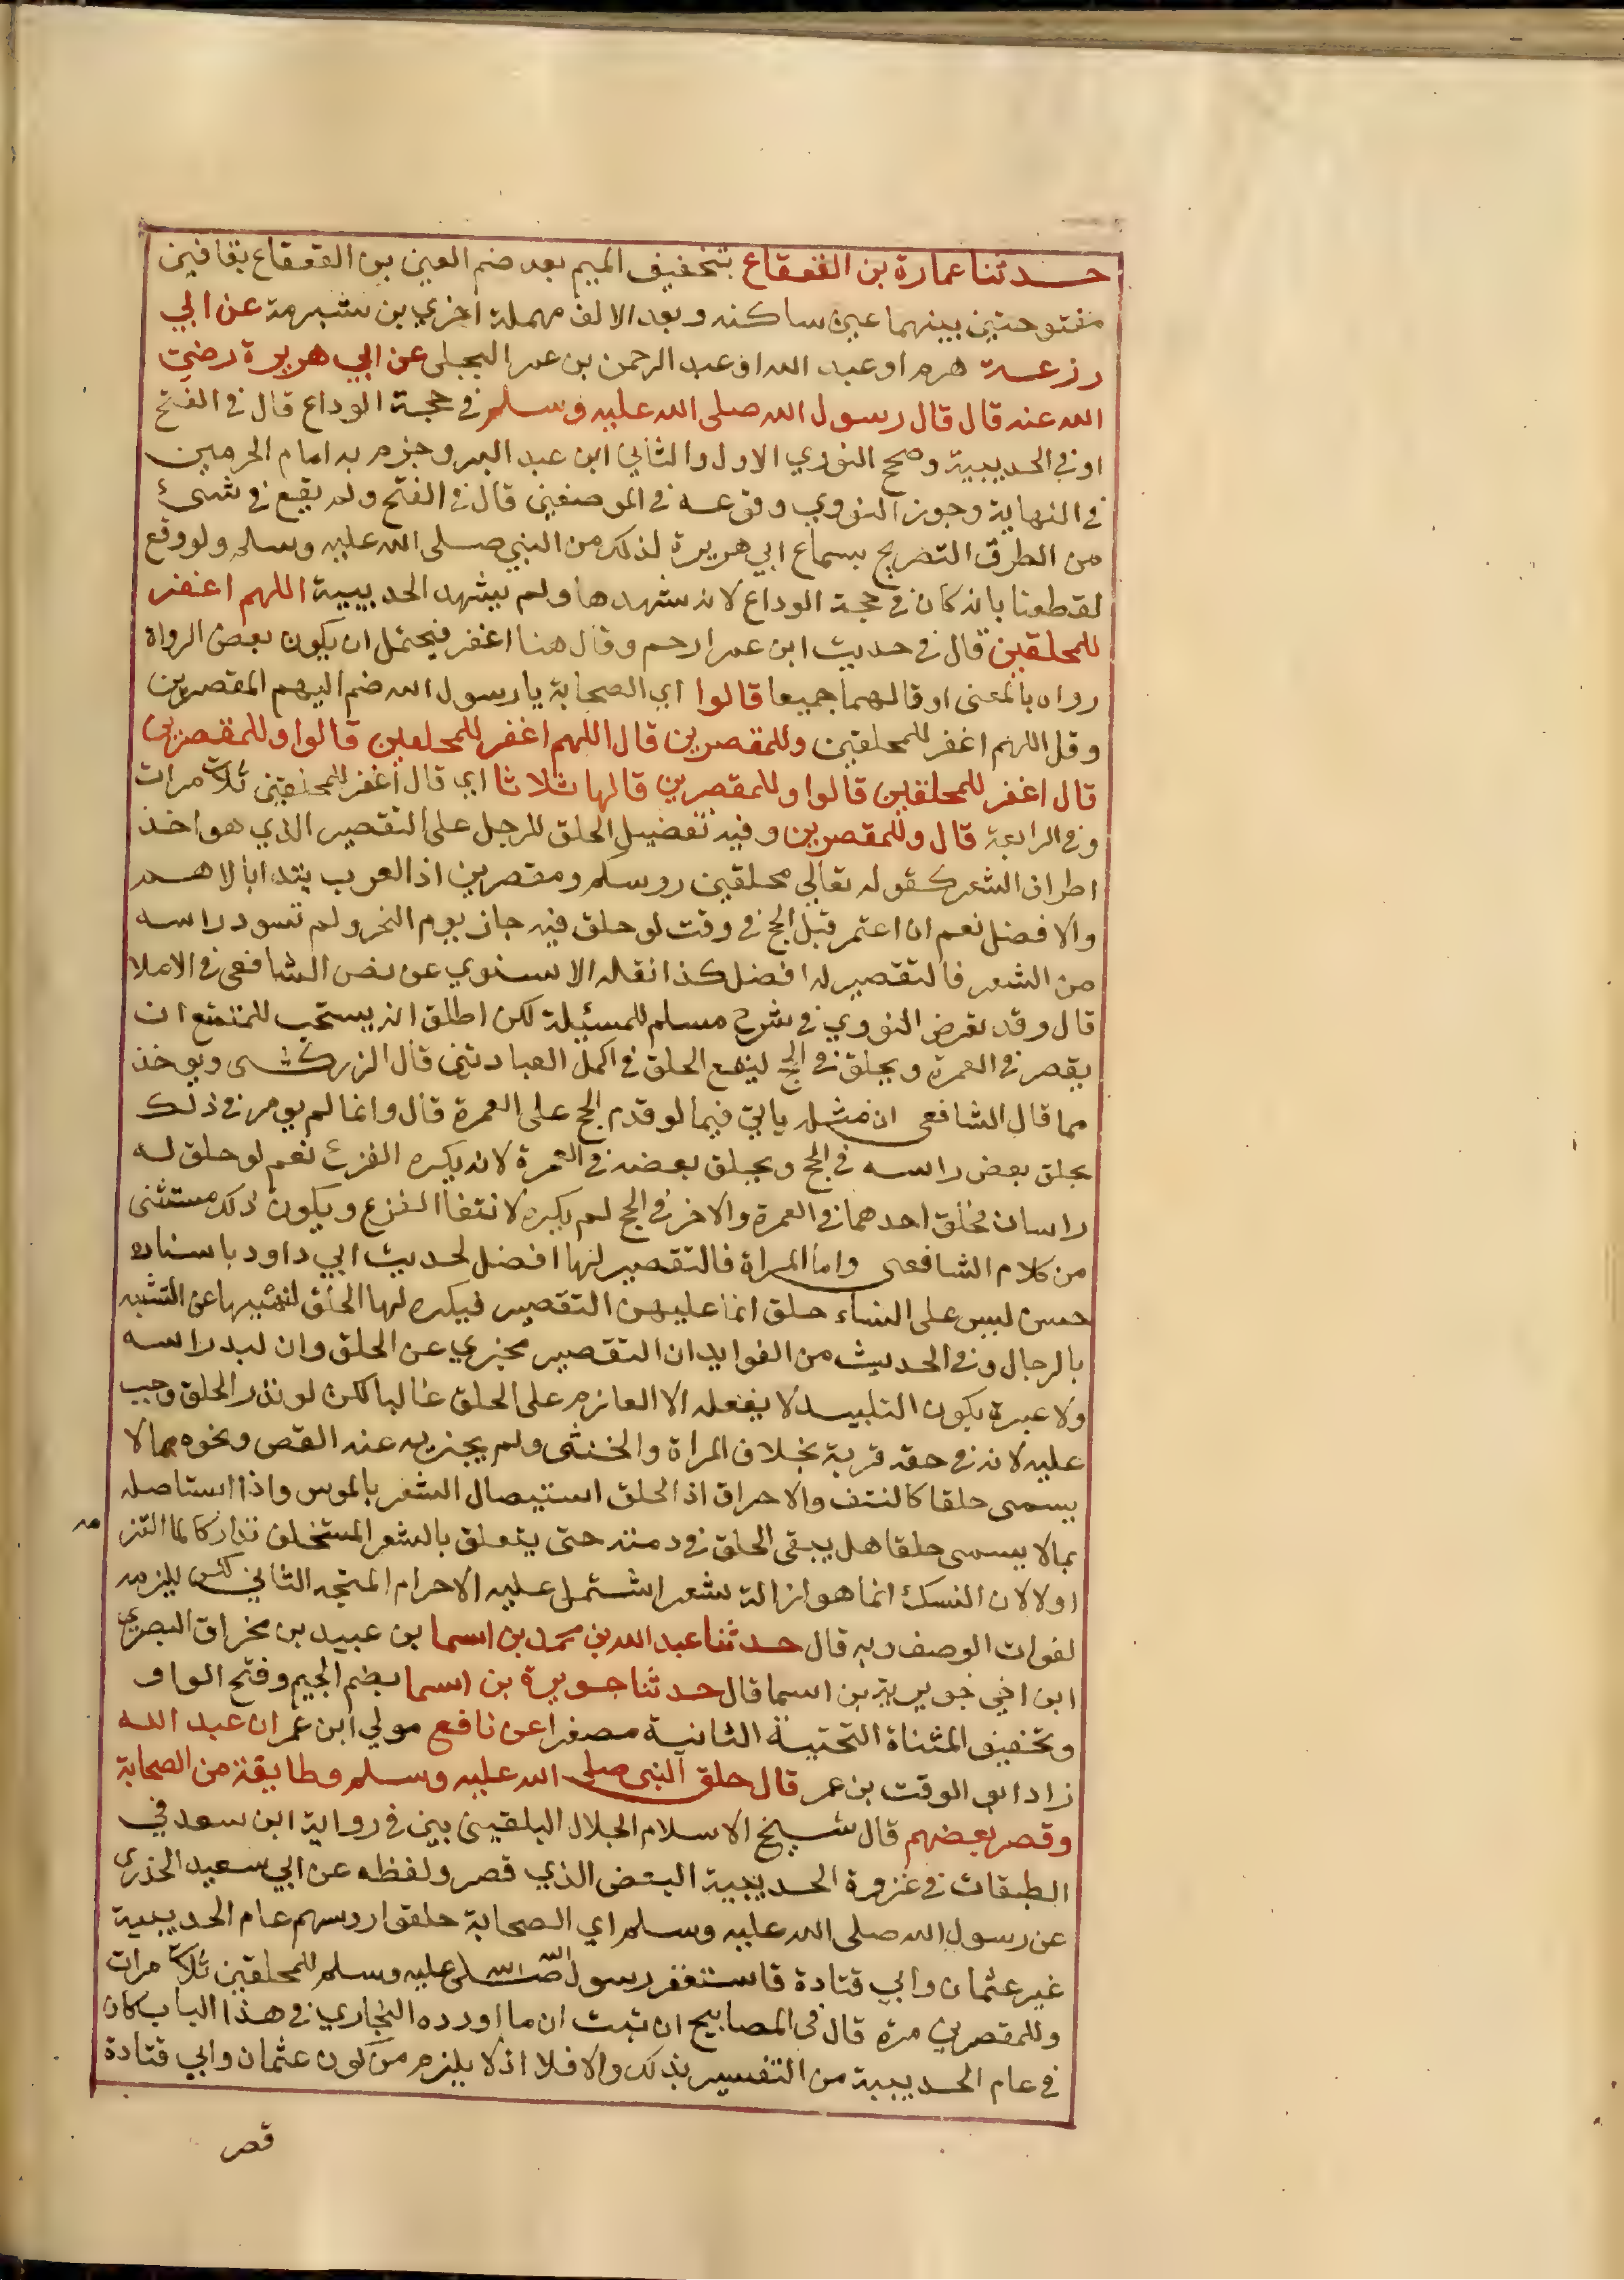 حدثنا عمارة بن القعقاع بتخفيف الميم بعد ضم العين بن القعقاع بقافين
مفتوحتين بينهما عين ساكنه وبعد الالف مهملة اخري بن شبرمة عن ابي
زرعة هرم او عبد الله او عبد الرحمن بن عمر البجلي عن ابي هريرة رضي
الله عنه قال قال رسول الله صلى الله عليه وسلم في حجة الوداع قال في الفتح
او في الحديبية وصحح النووي الاول والثاني ابن عبد البر وجزم به امام الحرمين
في النهاية وجوز النووي وقوعه في الموضعين قال في الفتح ولم يقع في شيئ
من الطرق التصريح بسماع ابي هريرة لذلك من النبي صلى الله عليه وسلم ولو وقع
لقطعنا بانه كان في حجة الوداع لانه شهدها ولم يشهد الحديبية اللهم اغفر
للمحلقين قال في حديث ابن عمر ارحم وقال هنا اغفر فيحتمل ان يكون بعض الرواة
رواه بالمعنى او قالهما جميعا قالوا اي الصحابة يا رسول الله ضم اليهم المقصرين
وقل اللهم اغفر للمحلقين وللمقصرين قال اللهم اغفر للمحلقين قالوا وللمقصرين
قال اغفر للمحلقين قالوا وللمقصرين قالها ثلاثا اي قال اغفر للمحلقين ثلاث مرات
وفي الرابعة قال وللمقصرين وفيه تفضيل الحلق للرجل على التقصير الذي هو اخذ
اطراف الشعر كقوله تعالي محلقين روسكم ومقصرين اذ العرب يبتدا بالاهم
والافضل نعم ان اعتمر قبل الحج في وقت لو حلق فيه جاز يوم النحر ولم تسود راسه
من الشعر فالتقصير له افضل كذا نقله الاسنوي عن نص الشافعي في الاملا
قال وقد تعرض النووي في شرح مسلم للمسئلة لكن اطلق انه يستحب للمتمتع ان
يقصر في العمرة ويحلق في الحج ليقع الحلق في اكمل العبادتين قال الزركشي ويوخذ
مما قال الشافعي ان مثله ياتي فيما لو قدم الحج على العمرة قال وانما لم يومر في ذلك
بحلق بعض راسه في الحج وبحلق بعضه في العمرة لانه يكره القزع نعم لو حلق له
راسان فحلق احدهما في العمرة والاخر في الحج لم يكره لانتفا القزع ويكون ذلك مستثنى
من كلام الشافعي واما المراة فالتقصير لها افضل لحديث ابي داود باسناد
حسن ليس على النساء حلق انما عليهن التقصير فيكره لها الحلق لنهيها عن التشبه
بالرجال وفي الحديث من الفوايد ان التقصير مجزي عن الحلق وان لبد راسه
ولا عبرة بكون التلبيد لا يفعله الا العازم على الحلق غالبا لكن لو نذر الحلق وجب
عليه لانه في حقه قربة بخلاف المراة والخنثى ولم يجزيه عنه القص ونحوه مما لا
يسمى حلقا كالنتف والاحراق اذ الحلق استيصال الشعر بالموس واذا استاصله
بما لا يسمى حلقا هل يبقى الحلق في ذمته حتى يتعلق بالشعر المستخلف تداركا لما التزمه
اولا لان النسك انما هو ازالة شعر اشتمل عليه الاحرام المتجه الثاني لكن يلزمه
لفوات الوصف وبه قال حدثنا عبد الله بن محمد بن اسما بن عبيد بن مخراق البصري
ابن اخي جويرية بن اسما قال حدثنا جويرة بن اسما بضم الجيم وفتح الواو
وتخفيف المثناة التحتية الثانية مصغرا عن نافع مولي ابن عمر ان عبد الله
زاد ابو الوقت بن عمر قال حلق النبي صلى الله عليه وسلم وطايفة من الصحابة
وقصر بعضهم قال شيخ الاسلام الجلال البلقيني بين في رواية ابن سعد في
الطبقات في غزوة الحديبية البعض الذي قصر ولفظه عن ابي سعيد الخذري
عن رسول الله صلى الله عليه وسلم اي الصحابة حلقوا روسهم عام الحديبية
غير عثمان وابي قتادة فاستغفر رسول الله صلى الله عليه وسلم للمحلقين ثلاث مرات
وللمقصرين مرة قال في المصابيح ان ثبت ان ما اورده البخاري في هذا الباب كان
في عام الحديبية من التفسير بذلك والا فلا اذ لا يلزم من كون عثمان وابي قتادة
قصر